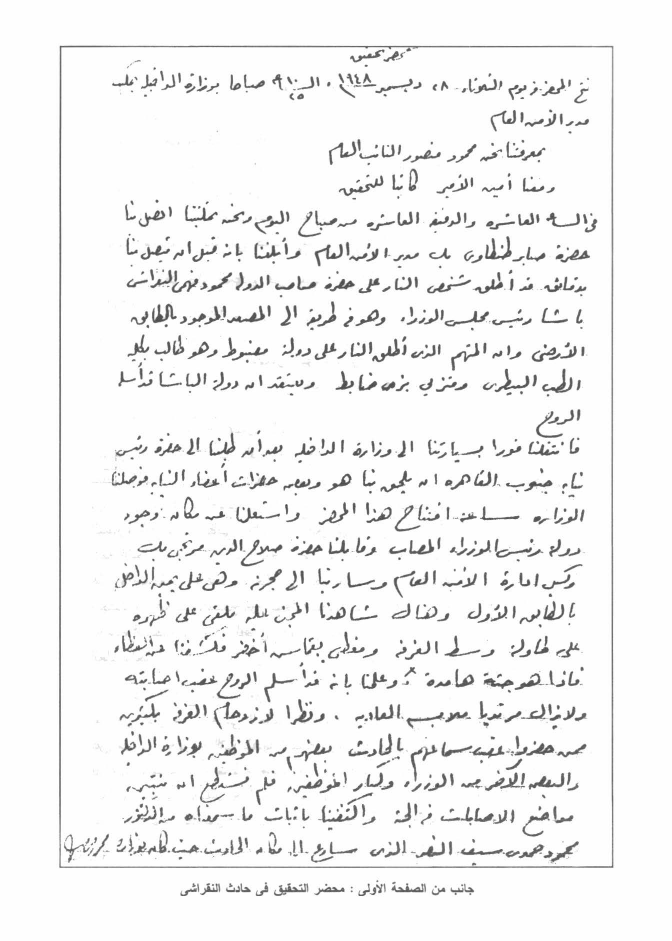 محضر تحقيق
فتح المحضر فى يوم الثلاثاء ٢٨ ديسمبر ١٩٤٨ الساعة صباحا بوزارة الداخلية بمكتب
مدير الأمن العام
بمعرفتنا نحن محمود منصور النائب العام
ومعنا أمين الأمير كاتبا للتحقيق
فى الساعة العاشره والدقيقة العاشره من صباح اليوم ونحن بمكتبنا اتصل بنا
حضرة صابر طنطاوى بك مدير الأمن العام وأبلغنا بانه قبل ان يتصل بنا
بدقائق قد أطلق شخص النار على حضرة صاحب الدولة محمود فهمى النقراشى
باشا رئيس مجلس الوزراء وهو فى طريقه الى المصعد الموجود بالطابق
الأرضى وان المتهم الذى أطلق النار على دولته مضبوط وهو طالب بكلية
الطب البيطرى ومتزيى بزى ضابط ويعتقد ان دولة الباشا قد أسلم
الروح
فانتقلنا فورا بسيارتنا الى وزارة الداخلية بعد أن طلبنا الى حضرة رئيس
نيابة جنوب القاهره ان يلحق بنا هو وبعض حضرات أعضاء النيابه فوصلنا
الوزاره ساعة افتتاح هذا المحضر واستعلنا عن مكان وجود
دولة رئيس الوزراء المصاب وقابلنا حضرة صلاح الدين مرتجى بك
وكيل ادارة الأمن العام وسار بنا الى حجرة وهى على يمين الداخل
بالطابق الأول وهناك شاهدنا المجنى عليه ملقى على ظهره
على طاولة وسط الغرفه ومغطى بقماش أخضر فكشفنا عنه الغطاء
فاذا هو جثة هامدة وعلمنا بانه قد أسلم الروح عقب اصابته
ولا يزال مرتديا ملابسه العاديه . ونظرا لازدحام الغرفة بكثيرين
ممن حضروا عقب سماعهم بالحادث بعضهم من الموظفين بوزارة الداخلية
والبعض الآخر من الوزراء وكبار الموظفين فلم نستطع ان نتبين
مواضع الاصابات فى الجثة واكتفينا باثبات ما سمعناه من الدكتور
محمود حمدى سيف النصر الذى سارع الى مكان الحادث حيث كان
جانب من الصفحة الأولى : محضر التحقيق فى حادث النقراشى